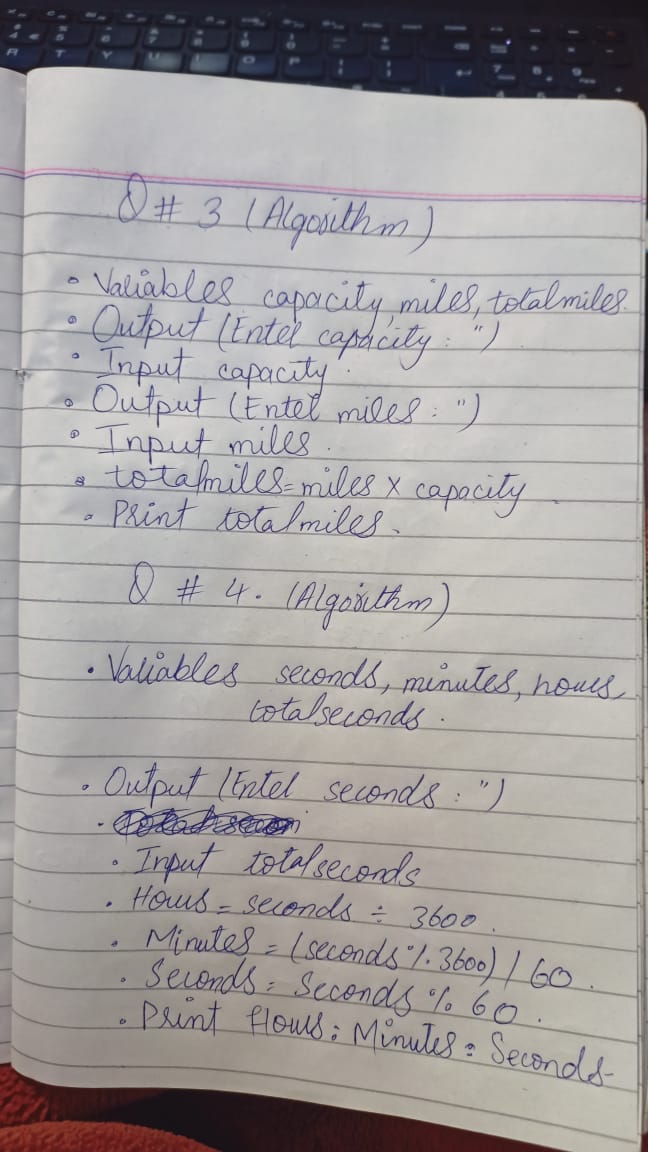 Q # 3 (Algorithm)
• Variables capacity, miles, totalmiles.
• Output (Enter capacity : ")
• Input capacity.
• Output (Enter miles : ")
• Input miles.
• totalmiles = miles x capacity.
• Print totalmiles.
Q # 4. (Algorithm)
• Variables seconds, minutes, hours,
totalseconds.
• Output (Enter seconds : ")
• Input totalseconds
• Hours = seconds ÷ 3600.
• Minutes = (seconds % 3600) / 60.
• Seconds = Seconds % 60.
• Print Hours : Minutes : Seconds.